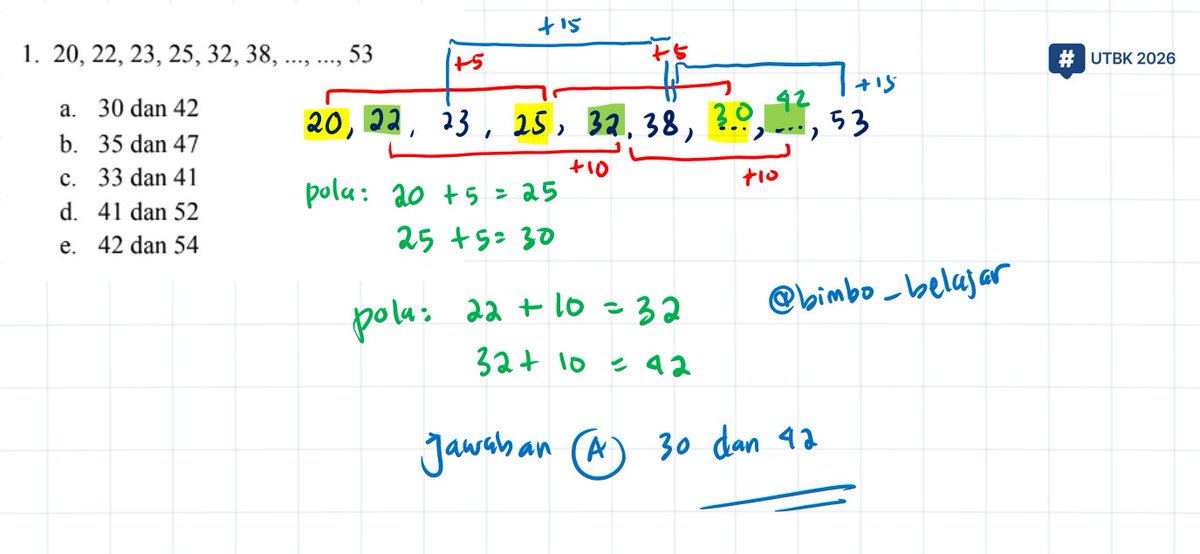 1. 20, 22, 23, 25, 32, 38, ..., ..., 53
a. 30 dan 42
b. 35 dan 47
c. 33 dan 41
d. 41 dan 52
e. 42 dan 54
# UTBK 2026
+15
+5 +5
+15
20, 22, 23, 25, 32, 38, 30, 42, 53
+10 +10
pola: 20 + 5 = 25
25 + 5 = 30
pola: 22 + 10 = 32
32 + 10 = 42
@bimbo_belajar
Jawaban A 30 dan 42